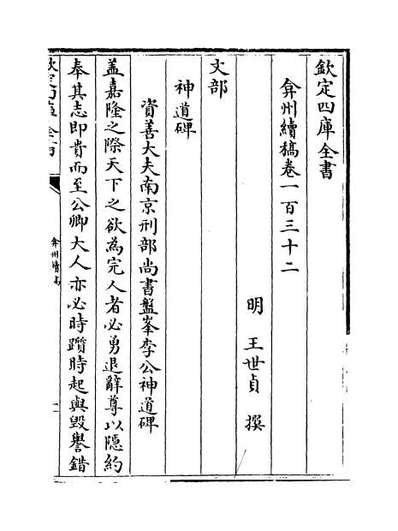 欽定四庫全書
弇州續稿卷一百三十二
明 王世貞 撰
文部
神道碑
資善大夫南京刑部尚書盤峯李公神道碑
葢嘉隆之際天下之欲為完人者必勇退辭尊以隱約
奉其志即貴而至公卿大人亦必時躓時起與毀譽錯
欽定四庫全書
弇州續稿
一